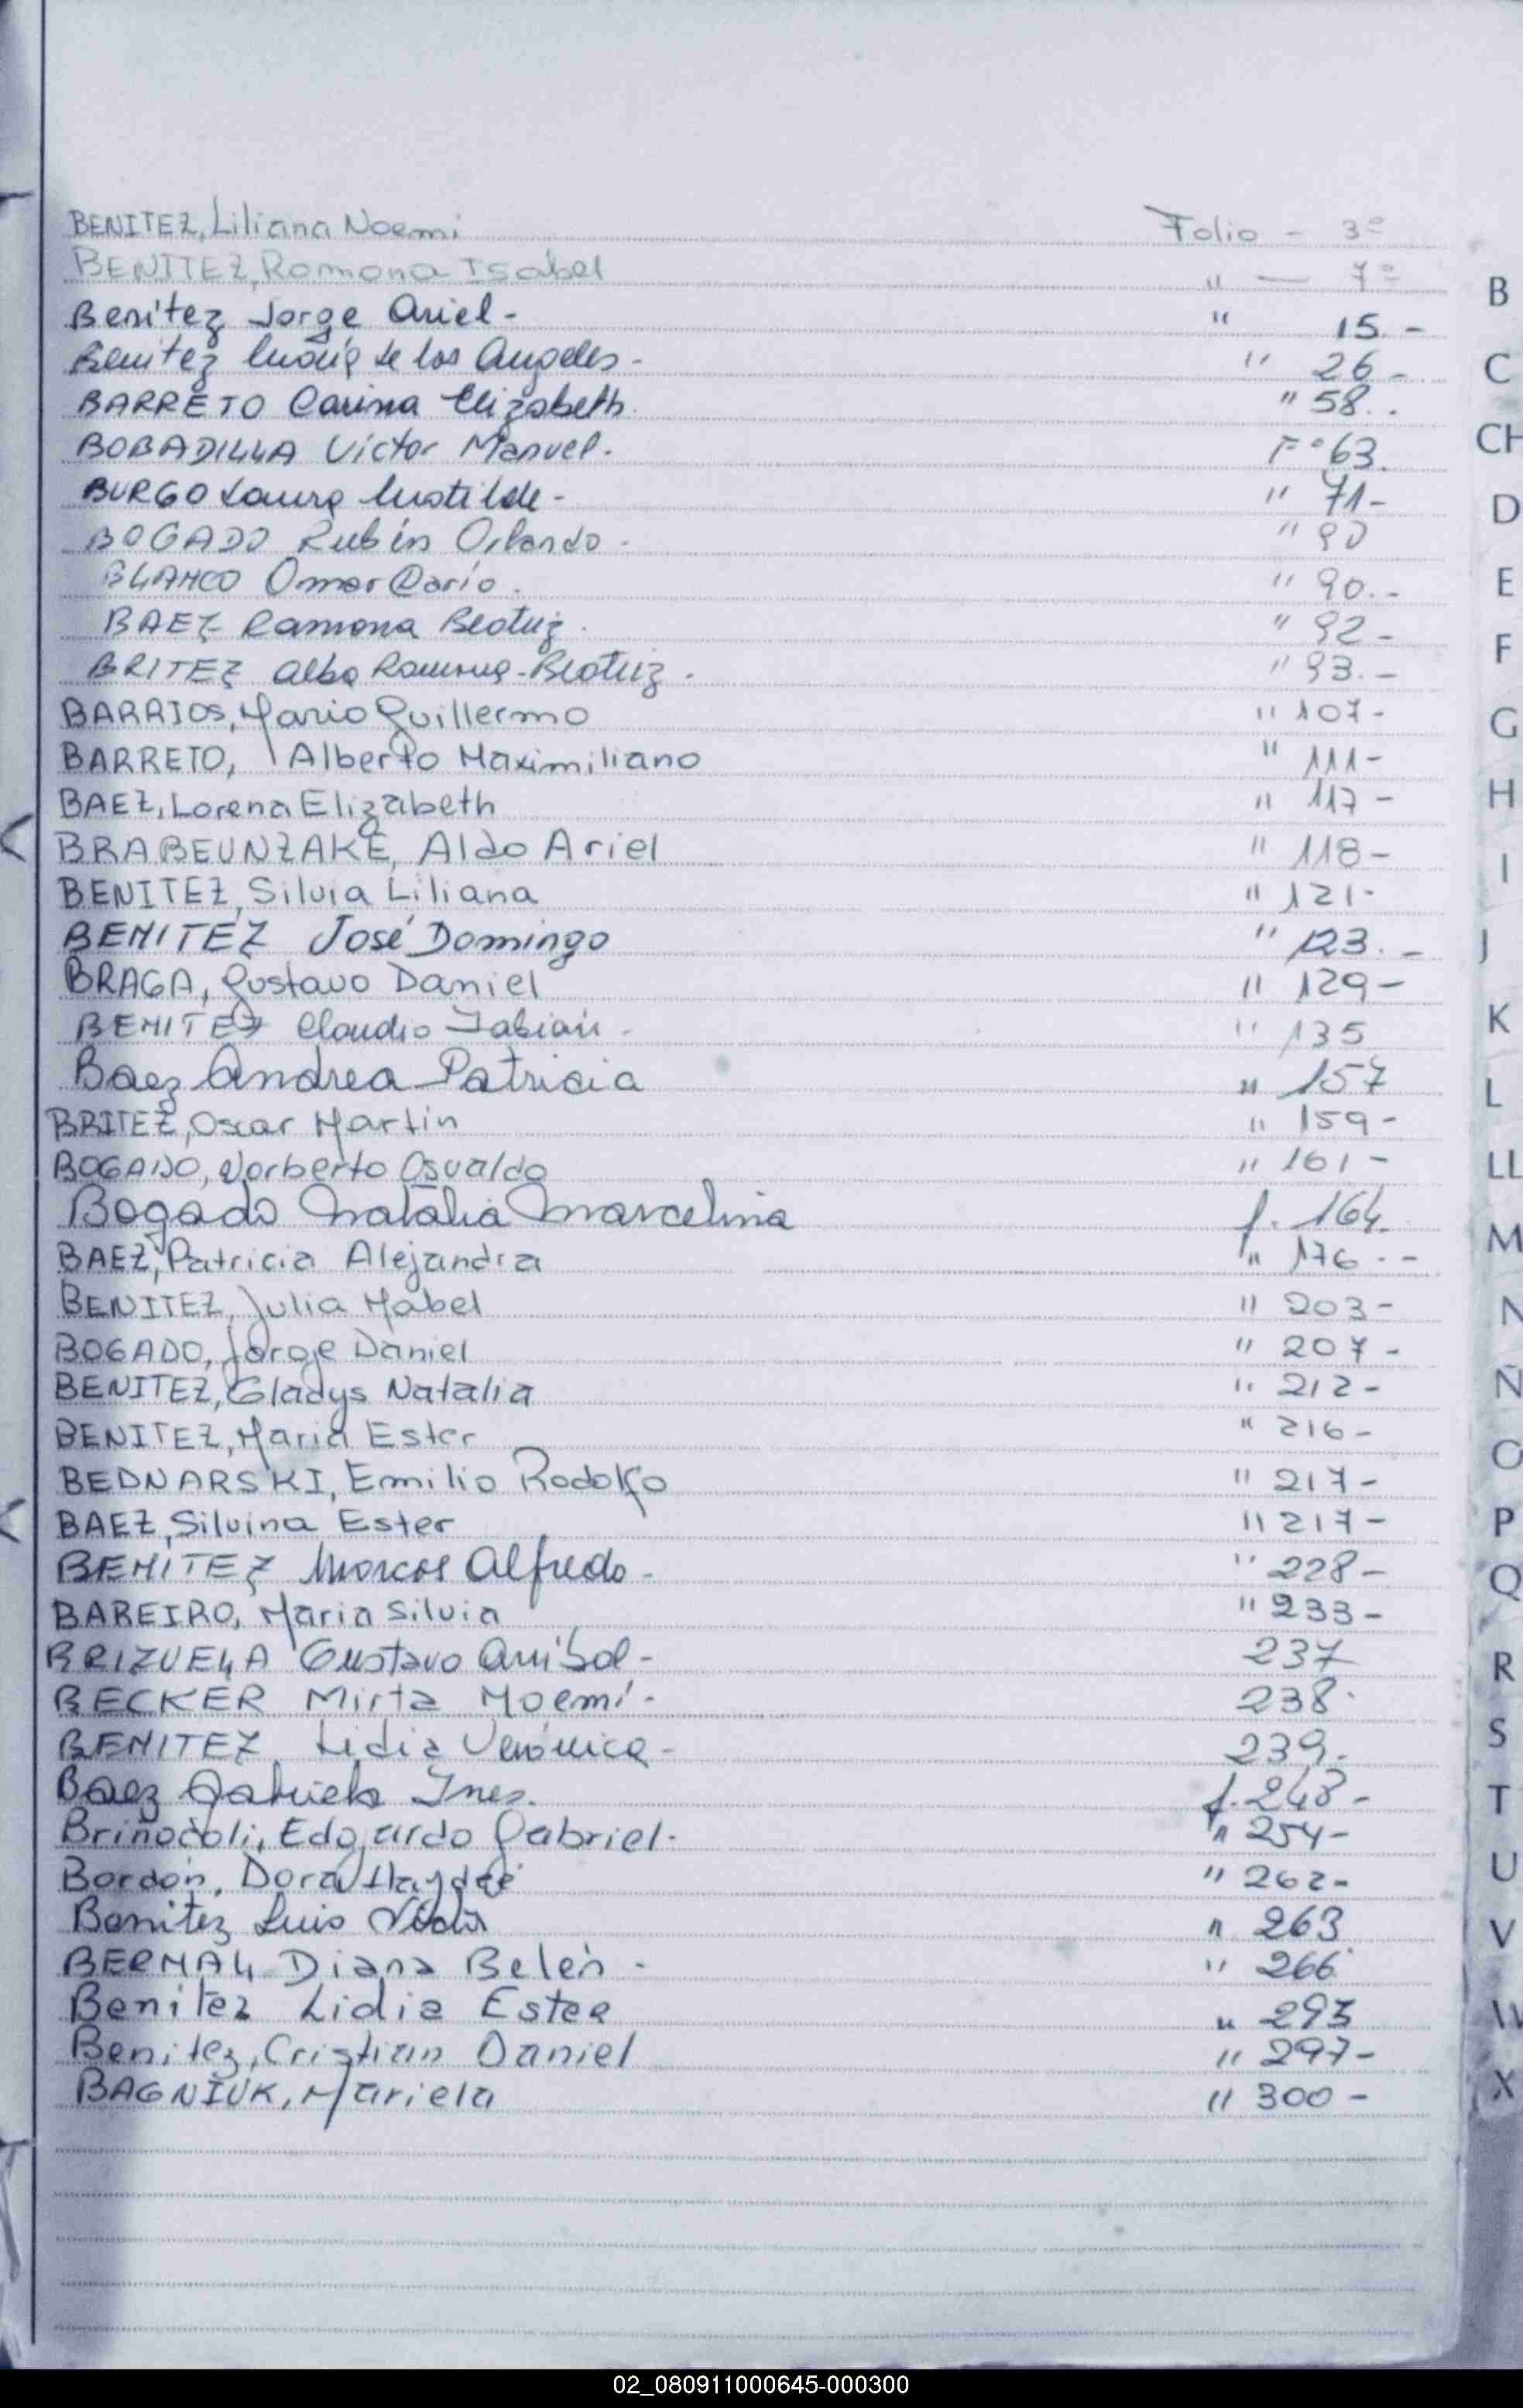 BENITEZ, Liliana Noemi Folio - 3º
BENITEZ, Ramona Isabel " — 7º
Benitez Jorge Ariel - " 15.-
Benitez María de los Angeles - " 26-
BARRETO Carina Elizabeth. " 58..
BOBADILLA Victor Manuel. Fº 63.
BURGO Laura Matilde - " 71-
BOGADO Rubén Orlando - "
BLANCO Omar Dario. " 90.-
BAEZ Ramona Beatriz. " 92-
BRITEZ Alba Ramona-Beatriz. " 93.-
BARRIOS, Mario Guillermo " 107-
BARRETO, Alberto Maximiliano " 111-
BAEZ, Lorena Elizabeth " 117-
BRABEUNZAKE, Aldo Ariel " 118-
BENITEZ, Silvia Liliana " 121-
BENITEZ José Domingo " 123.-
BRAGA, Gustavo Daniel " 129-
BENITEZ Claudio Fabián - " 135
Baez Andrea Patricia " 157
BRITEZ, Oscar Martin " 159-
BOGADO, Norberto Osvaldo " 161-
Bogado Natalia Marcelina f. 164.
BAEZ, Patricia Alejandra " 176.-
BENITEZ, Julia Mabel " 203-
BOGADO, Jorge Daniel " 207-
BENITEZ, Gladys Natalia " 212-
BENITEZ, Maria Ester " 216-
BEDNARSKI, Emilio Rodolfo " 217-
BAEZ, Silvina Ester " 217-
BENITEZ Marcos Alfredo - " 228-
BAREIRO, Maria Silvia " 233-
BRIZUELA Gustavo Anibal - 237
BECKER Mirta Noemí - 238.
BENITEZ Lidia Verónica - 239.
Baez Gabriela Ines. f. 248-
Brinocoli, Edgardo Gabriel. " 254-
Bordón, Dora Haydeé " 262-
Benitez Luis " 263
BERNAL Diana Belén - " 266
Benitez Lidia Ester " 293
Benitez, Cristian Daniel " 297-
BAGNIUK, Mariela " 300-
B
C
CH
D
E
F
G
H
I
J
K
L
LL
M
N
Ñ
O
P
Q
R
S
T
U
V
W
X
02_080911000645-000300